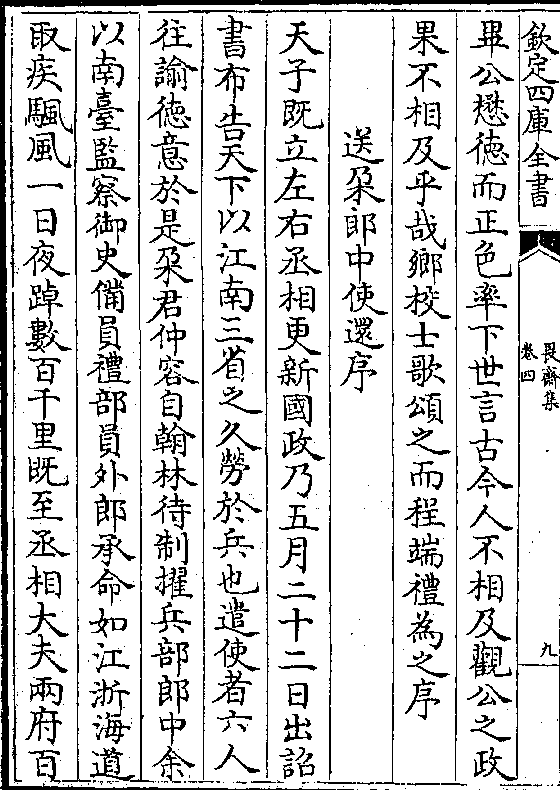 欽定四庫全書
畏齋集
卷四
九
畢公懋徳而正色率下世言古今人不相及觀公之政
果不相及乎哉鄉校士歌頌之而程端禮為之序
送朶郎中使還序
天子既立左右丞相更新國政乃五月二十二日出詔
書布告天下以江南三省之久勞於兵也遣使者六人
往諭徳意於是朶君仲容自翰林待制擢兵部郎中余
以南臺監察御史備員禮部員外郎承命如江浙海道
取疾颿風一日夜踔數百千里既至丞相大夫兩府百